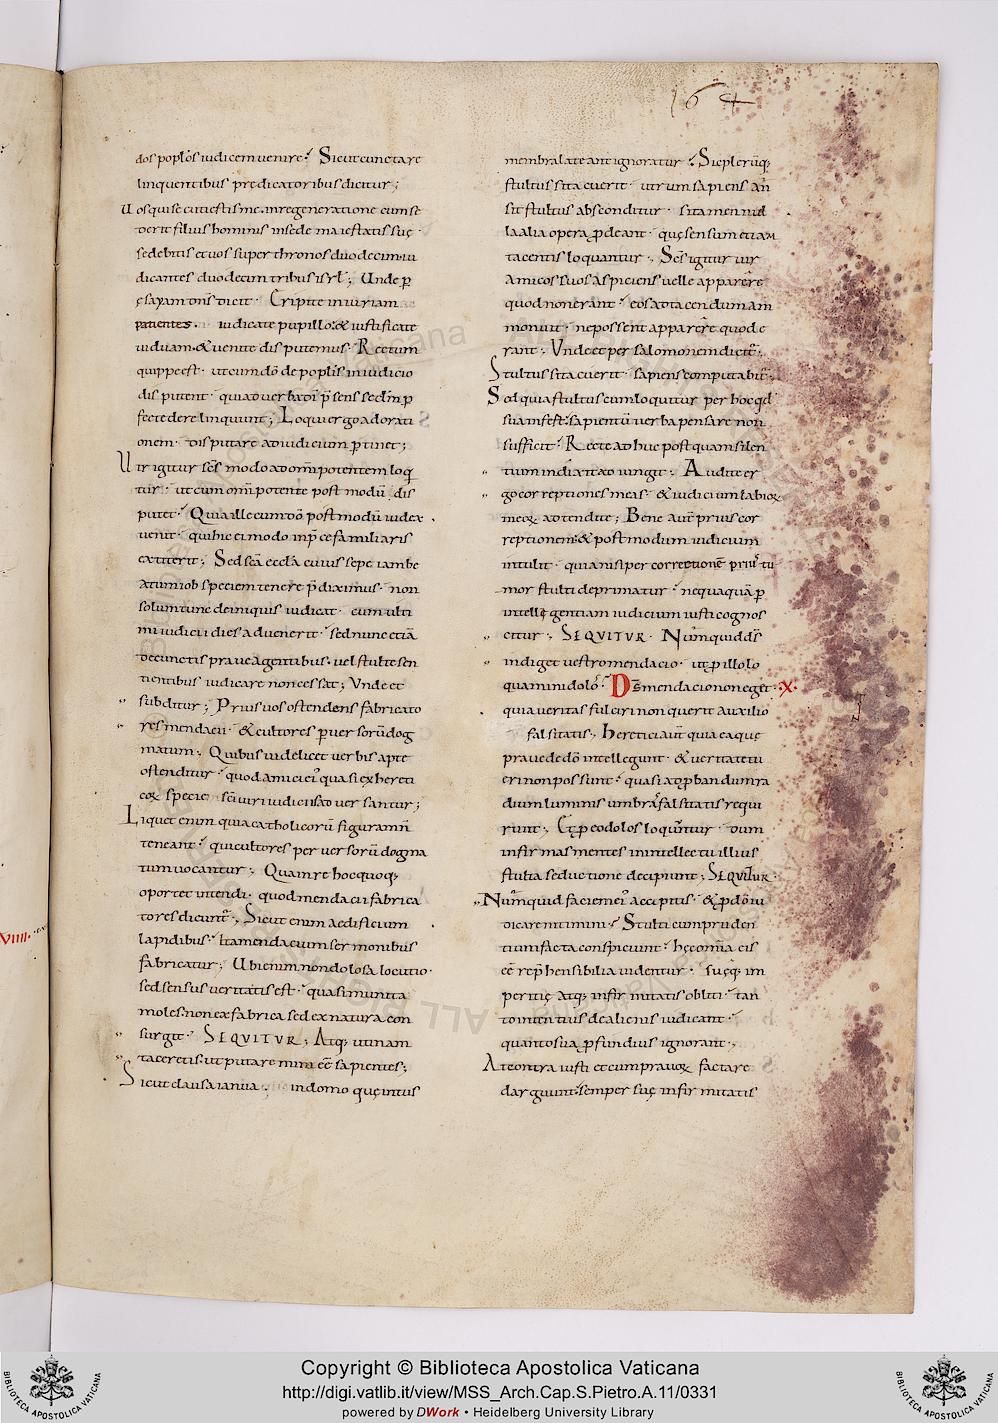 164
dos poplos iudicem uenire; Sicut cunctare
linquentibus predicatoribus dicitur;
Uos qui secuti estis me. in regeneratione cum se
derit filius hominis in sede maiestatis suę
sedebitis et uos super thronos duodecim iu
dicantes duodecim tribus isrl; Unde p
esayam dns dicit Eripite iniuriam
patientes. iudicate pupillo. & iustificate
uiduam. & uenite disputemus; Rectum
quippe est ut cum dō de poplis in iudicio
disputent quia ad uerba dni psens sēclm p
fecte derelinquunt; Loqui ergo ad orati
onem disputare ad iudicium ptinet;
Uir igitur scs modo ad omipotentem loq
tur ut cum omipotente post modū dis
putet; Quia ille cum dō postmodū iudex
uenit qui hic ei modo in pce familiaris
extiterit; Sed scā ecclā cuius sepe iam be
atum iob speciem tenere pdiximus non
solum tunc de iniquis iudicat cum ulti
mi iudicii dies aduenerit sed nunc etiā
de cunctis praue agentibus. uel stulte sen
tientibus iudicare non cessat; Unde et
subditur; Prius uos ostendens fabricato
res mendacii & cultores puersorū dog
matum; Quibus uidelicet uerbis apte
ostenditur quod amici ei quasi ex hereti
coꝝ specie sci uiri iudicis aduersantur;
Liquet enim quia catholicorū figuram ñ
teneant qui cultores peruersorū dogma
tum uocantur; Qua in re hoc quoq;
oportet intendi quod mendacii fabrica
tores dicunt; Sicut enim aedificium
lapidibus ita mendacium sermonibus
fabricatur; Ubi enim non dolosa locutio
sed sensus ueritatis est quasi munita
moles non ex fabrica sed ex natura con
surgit SEQUITUR; Atq; utinam
taceretis. ut putaremini ēē sapientes;
Sicut clausa ianua in domo quę intus
membra lateant ignoratur; Sic pleruq;
stultus si tacuerit utrum sapiens an
sit stultus absconditur si tamen nul
la alia opera pdeant quę sensum etiam
tacentis loquantur; Scs igitur uir
amicos suos aspiciens uelle apparere
quod non erant eos ad tacendum am
monuit ne possent apparere quod e
rant; Unde et per salomonem dictū;
Stultus si tacuerit sapiens computabit;
Sed quia stultus cum loquitur per hoc qd
sua infest; sapientū uerba pensare non
sufficit; Recte adhuc postquam silen
tium indixit adiungit; Audite er
go correptiones meas & iudicium labioꝝ
meoꝝ adtendite; Bene aut prius cor
reptionem & postmodum iudicium
intulit quia nisi per correptione prius tu
mor stulti deprimatur nequaquā p
intellegentiam iudicium iusti cognos
citur; SEQUITUR Numquid ds
indiget uestro mendacio ut p illo lo
quamini dolos; Ds mendacio non eget X
quia ueritas fulciri non querit auxilio
falsitatis; Heretici aut quia ea quę
praue de dō intellegunt & ueritate tu
eri non possunt quasi ad pbandum ra
dium luminis umbra falsitatis requi
runt; Et p eo dolos loquuntur dum
infirmas mentes in intellectu illius
stulta seductione decipiunt; SEQUITUR
Numquid faciem ei accipitis & p dō iu
dicare nitimini; Stulti cum pruden
tium facta conspiciunt hęc omia eis
ēē rephensibilia uidentur; Suęq; im
peritię atq; infirmitatis obliti tan
to intentius de alienis iudicant
quanto sua pfundius ignorant;
At econtra iusti et cum prauoꝝ facta re
darguunt semper suę infirmitatis
VIIII.
Copyright © Biblioteca Apostolica Vaticana
http://digi.vatlib.it/view/MSS_Arch.Cap.S.Pietro.A.11/0331
powered by DWork • Heidelberg University Library
BIBLIOTECA APOSTOLICA VATICANA
BIBLIOTECA APOSTOLICA VATICANA